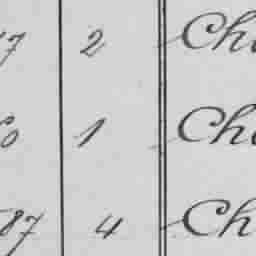 7 2 Ch
0 1 Ch
87 4 Ch